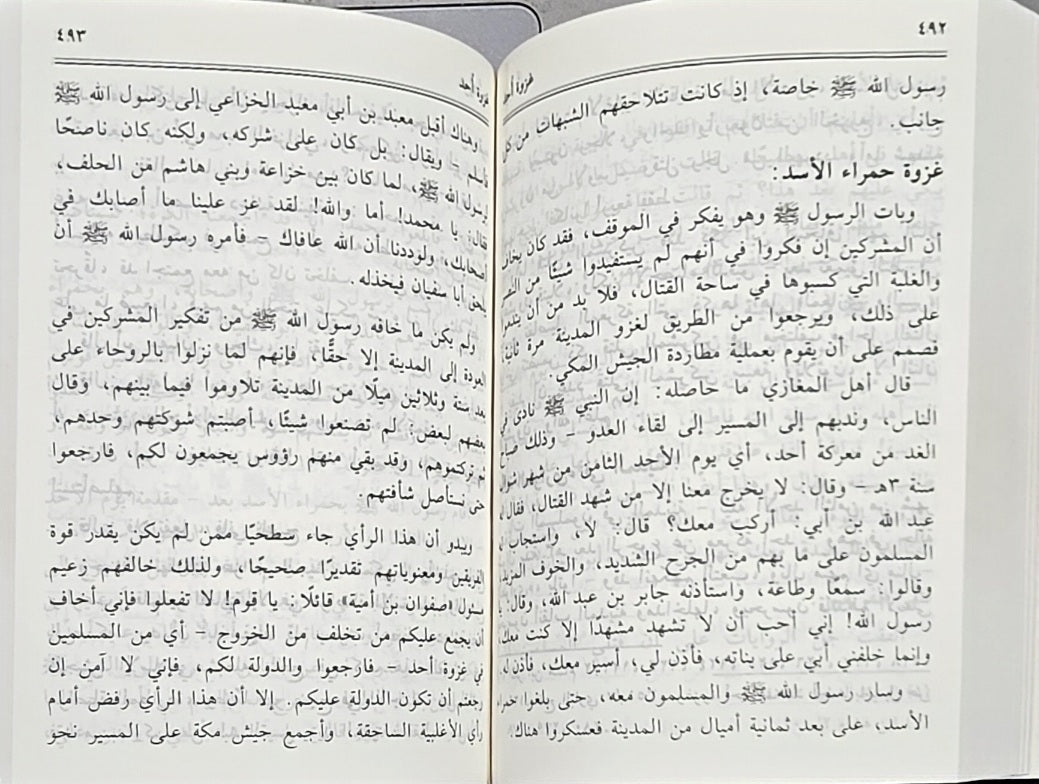 ٤٩٢
غزوة أحد
رسول الله ﷺ خاصة، إذ كانت تتلاحقهم الشبهات من كل
جانب.
غزوة حمراء الأسد:
وبات الرسول ﷺ وهو يفكر في الموقف، فقد كان يخاف
أن المشركين إن فكروا في أنهم لم يستفيدوا شيئًا من النصر
والغلبة التي كسبوها في ساحة القتال، فلا بد من أن يندموا
على ذلك، ويرجعوا من الطريق لغزو المدينة مرة ثانية،
فصمم على أن يقوم بعملية مطاردة الجيش المكي.
قال أهل المغازي ما حاصله: إن النبي ﷺ نادى في
الناس، وندبهم إلى المسير إلى لقاء العدو - وذلك صباح
الغد من معركة أحد، أي يوم الأحد الثامن من شهر شوال
سنة ٣هـ - وقال: لا يخرج معنا إلا من شهد القتال، فقال له
عبد الله بن أبي: أركب معك؟ قال: لا، واستجاب له
المسلمون على ما بهم من الجرح الشديد، والخوف المزيد،
وقالوا: سمعًا وطاعة، واستأذنه جابر بن عبد الله، وقال: يا
رسول الله! إني أحب أن لا تشهد مشهدًا إلا كنت معك،
وإنما خلفني أبي على بناته، فأذن لي، أسير معك، فأذن له.
وسار رسول الله ﷺ والمسلمون معه، حتى بلغوا حمراء
الأسد، على بعد ثمانية أميال من المدينة فعسكروا هناك.
٤٩٣
غزوة أحد
وهناك أقبل معبد بن أبي معبد الخزاعي إلى رسول الله ﷺ
فأسلم - ويقال: بل كان على شركه، ولكنه كان ناصحًا
لرسول الله ﷺ، لما كان بين خزاعة وبني هاشم من الحلف،
فقال: يا محمد! أما والله! لقد عز علينا ما أصابك في
أصحابك، ولوددنا أن الله عافاك - فأمره رسول الله ﷺ أن
يلحق أبا سفيان فيخذله.
ولم يكن ما خافه رسول الله ﷺ من تفكير المشركين في
العودة إلى المدينة إلا حقًّا، فإنهم لما نزلوا بالروحاء على
بعد ستة وثلاثين ميلًا من المدينة تلاوموا فيما بينهم، وقال
بعضهم لبعض: لم تصنعوا شيئًا، أصبتم شوكتهم وحدهم،
ثم تركتموهم، وقد بقي منهم رؤوس يجمعون لكم، فارجعوا
حتى نستأصل شأفتهم.
ويبدو أن هذا الرأي جاء سطحيًا ممن لم يكن يقدر قوة
الفريقين ومعنوياتهم تقديرًا صحيحًا، ولذلك خالفهم زعيم
مسئول «صفوان بن أمية» قائلًا: يا قوم! لا تفعلوا فإني أخاف
أن يجمع عليكم من تخلف من الخروج - أي من المسلمين
في غزوة أحد - فارجعوا والدولة لكم، فإني لا آمن إن
رجعتم أن تكون الدولة عليكم. إلا أن هذا الرأي رفض أمام
رأي الأغلبية الساحقة، وأجمع جيش مكة على المسير نحو